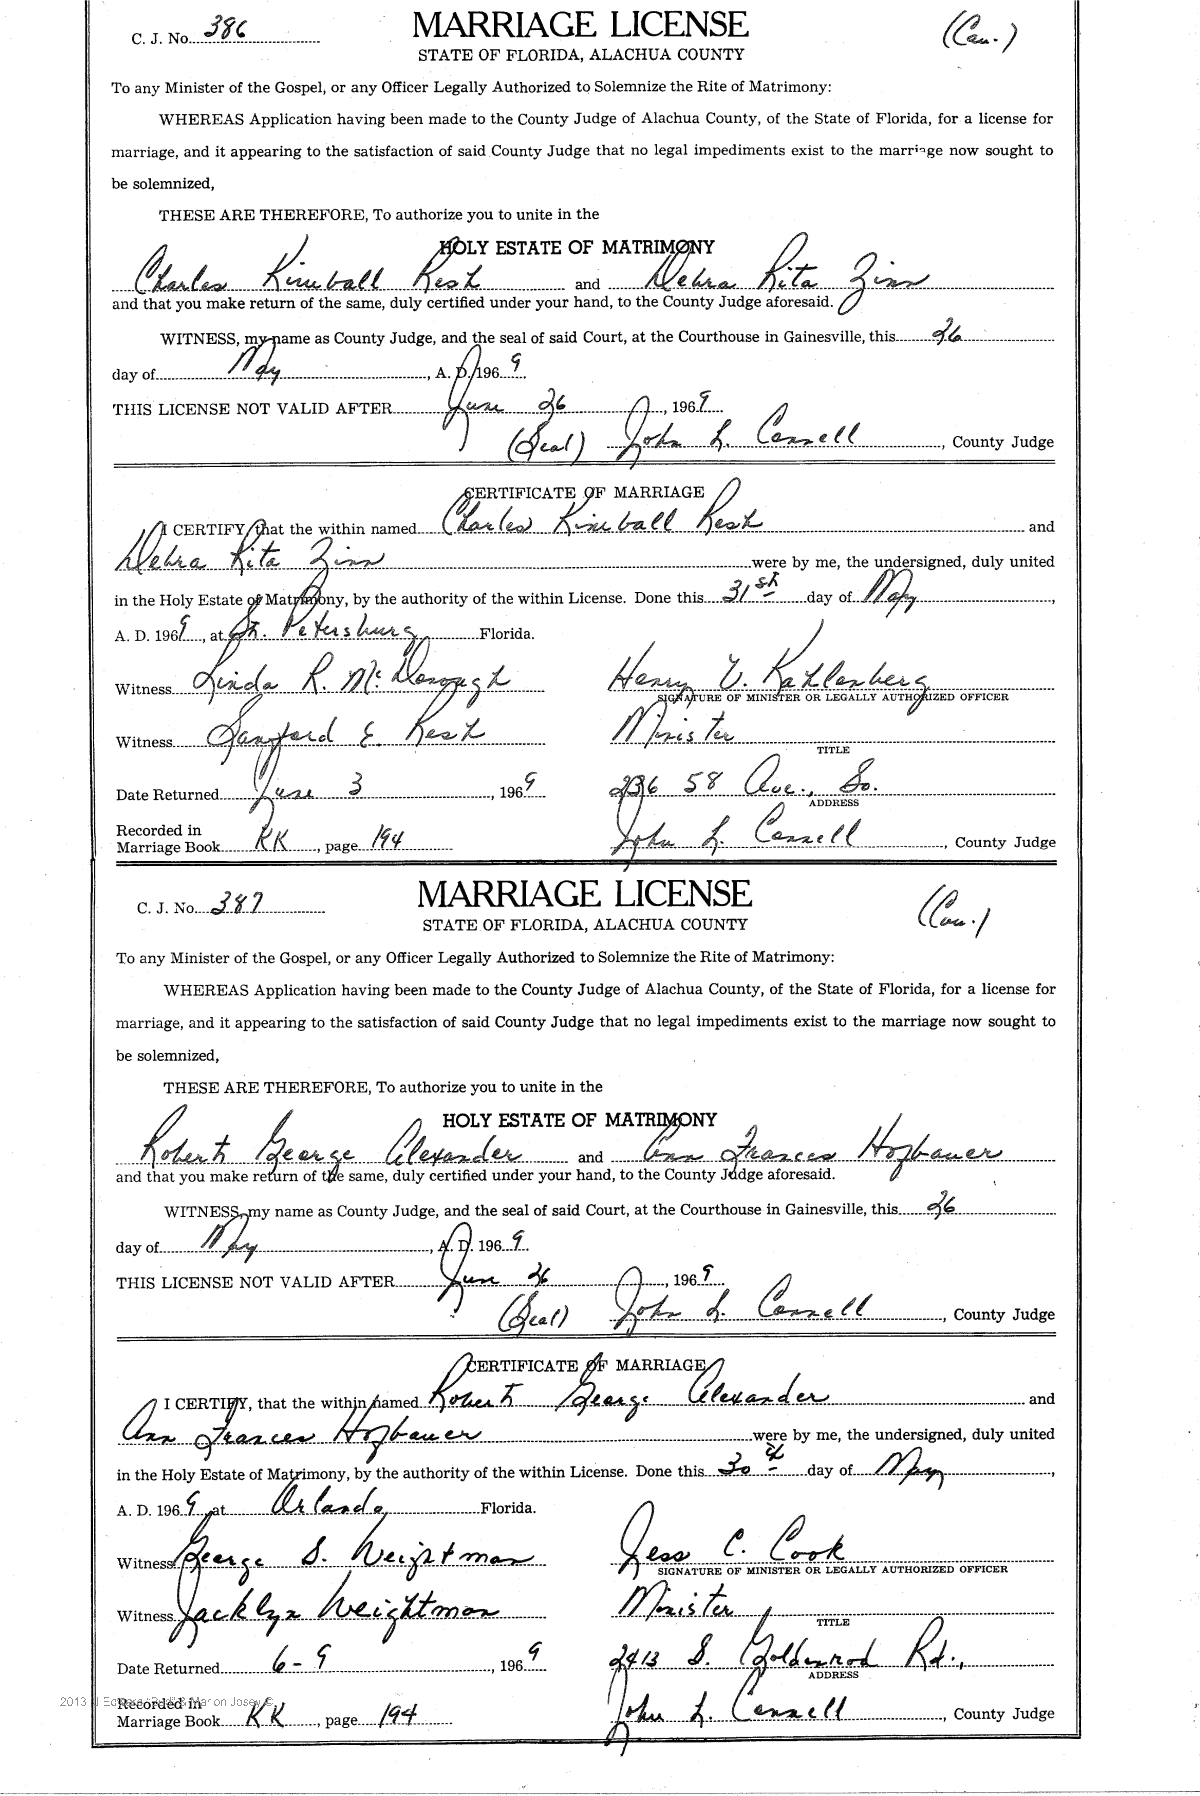 C. J. No. 386
MARRIAGE LICENSE
(Cau.)
STATE OF FLORIDA, ALACHUA COUNTY
To any Minister of the Gospel, or any Officer Legally Authorized to Solemnize the Rite of Matrimony:
WHEREAS Application having been made to the County Judge of Alachua County, of the State of Florida, for a license for
marriage, and it appearing to the satisfaction of said County Judge that no legal impediments exist to the marriage now sought to
be solemnized,
THESE ARE THEREFORE, To authorize you to unite in the
HOLY ESTATE OF MATRIMONY
Charles Kimball Resh and Debra Rita Zinn
and that you make return of the same, duly certified under your hand, to the County Judge aforesaid.
WITNESS, my name as County Judge, and the seal of said Court, at the Courthouse in Gainesville, this 26
day of May, A. D. 1969
THIS LICENSE NOT VALID AFTER June 26, 1969
(Seal) John L. Connell, County Judge
CERTIFICATE OF MARRIAGE
I CERTIFY that the within named Charles Kimball Resh and
Debra Rita Zinn were by me, the undersigned, duly united
in the Holy Estate of Matrimony, by the authority of the within License. Done this 31st day of May,
A. D. 1969, at St. Petersburg, Florida.
Witness Linda R. McDonough Henry V. Kahlenberg
SIGNATURE OF MINISTER OR LEGALLY AUTHORIZED OFFICER
Witness Sanford E. Resh Minister
TITLE
Date Returned June 3, 1969 236 58 Ave., So.
ADDRESS
Recorded in
Marriage Book KK, page 194 John L. Connell, County Judge
C. J. No. 387
MARRIAGE LICENSE
(Cau.)
STATE OF FLORIDA, ALACHUA COUNTY
To any Minister of the Gospel, or any Officer Legally Authorized to Solemnize the Rite of Matrimony:
WHEREAS Application having been made to the County Judge of Alachua County, of the State of Florida, for a license for
marriage, and it appearing to the satisfaction of said County Judge that no legal impediments exist to the marriage now sought to
be solemnized,
THESE ARE THEREFORE, To authorize you to unite in the
HOLY ESTATE OF MATRIMONY
Robert George Alexander and Ann Frances Hofbauer
and that you make return of the same, duly certified under your hand, to the County Judge aforesaid.
WITNESS, my name as County Judge, and the seal of said Court, at the Courthouse in Gainesville, this 26
day of May, A. D. 1969
THIS LICENSE NOT VALID AFTER June 26, 1969
(Seal) John L. Connell, County Judge
CERTIFICATE OF MARRIAGE
I CERTIFY, that the within named Robert George Alexander and
Ann Frances Hofbauer were by me, the undersigned, duly united
in the Holy Estate of Matrimony, by the authority of the within License. Done this 30th day of May,
A. D. 1969, at Orlando, Florida.
Witness George S. Weightman Jess C. Cook
SIGNATURE OF MINISTER OR LEGALLY AUTHORIZED OFFICER
Witness Jacklyn Weightman Minister
TITLE
Date Returned 6-9, 1969 2413 S. Goldenrod Rd.,
ADDRESS
2013
Recorded in
Marriage Book KK, page 194 John L. Connell, County Judge